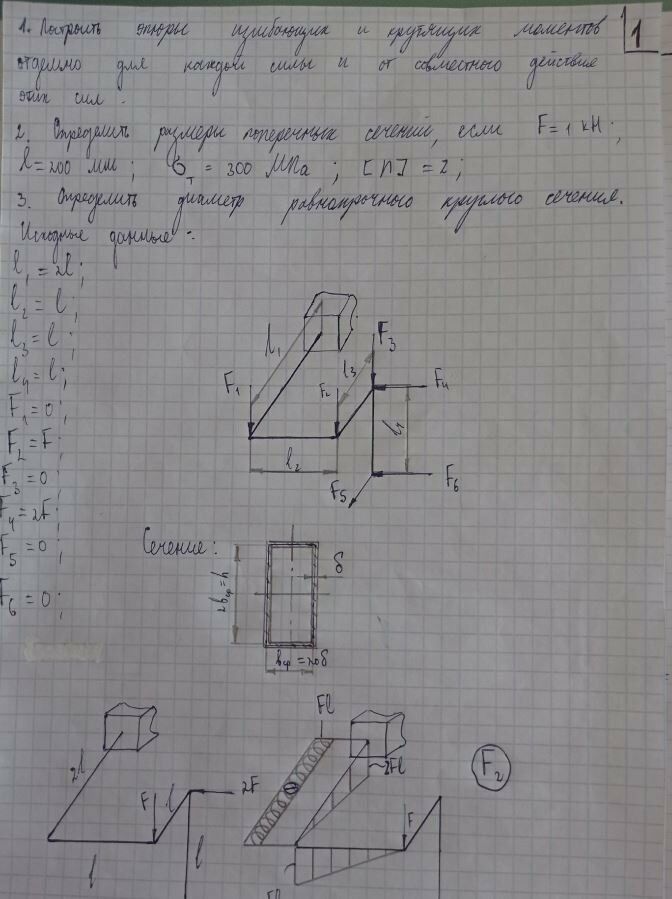 1. Построить эпюры изгибающих и крутящих моментов
отдельно для каждой силы и от совместного действия
этих сил.
1
2. Определить размеры поперечных сечений, если F=1 кН;
l=200 мм; σт = 300 МПа; [n] = 2;
3. Определить диаметр равнопрочного круглого сечения.
Исходные данные:
l1 = 2l;
l2 = l;
l3 = l;
l4 = l;
F1 = 0;
F2 = F;
F3 = 0;
F4 = 2F;
F5 = 0;
F6 = 0;
l1
F1
F2
l3
F3
F4
l4
l2
F5
F6
Сечение:
2bср = h
δ
bср = 20δ
2l
F
l
2F
l
l
Fl
2Fl
F2
F
Fl